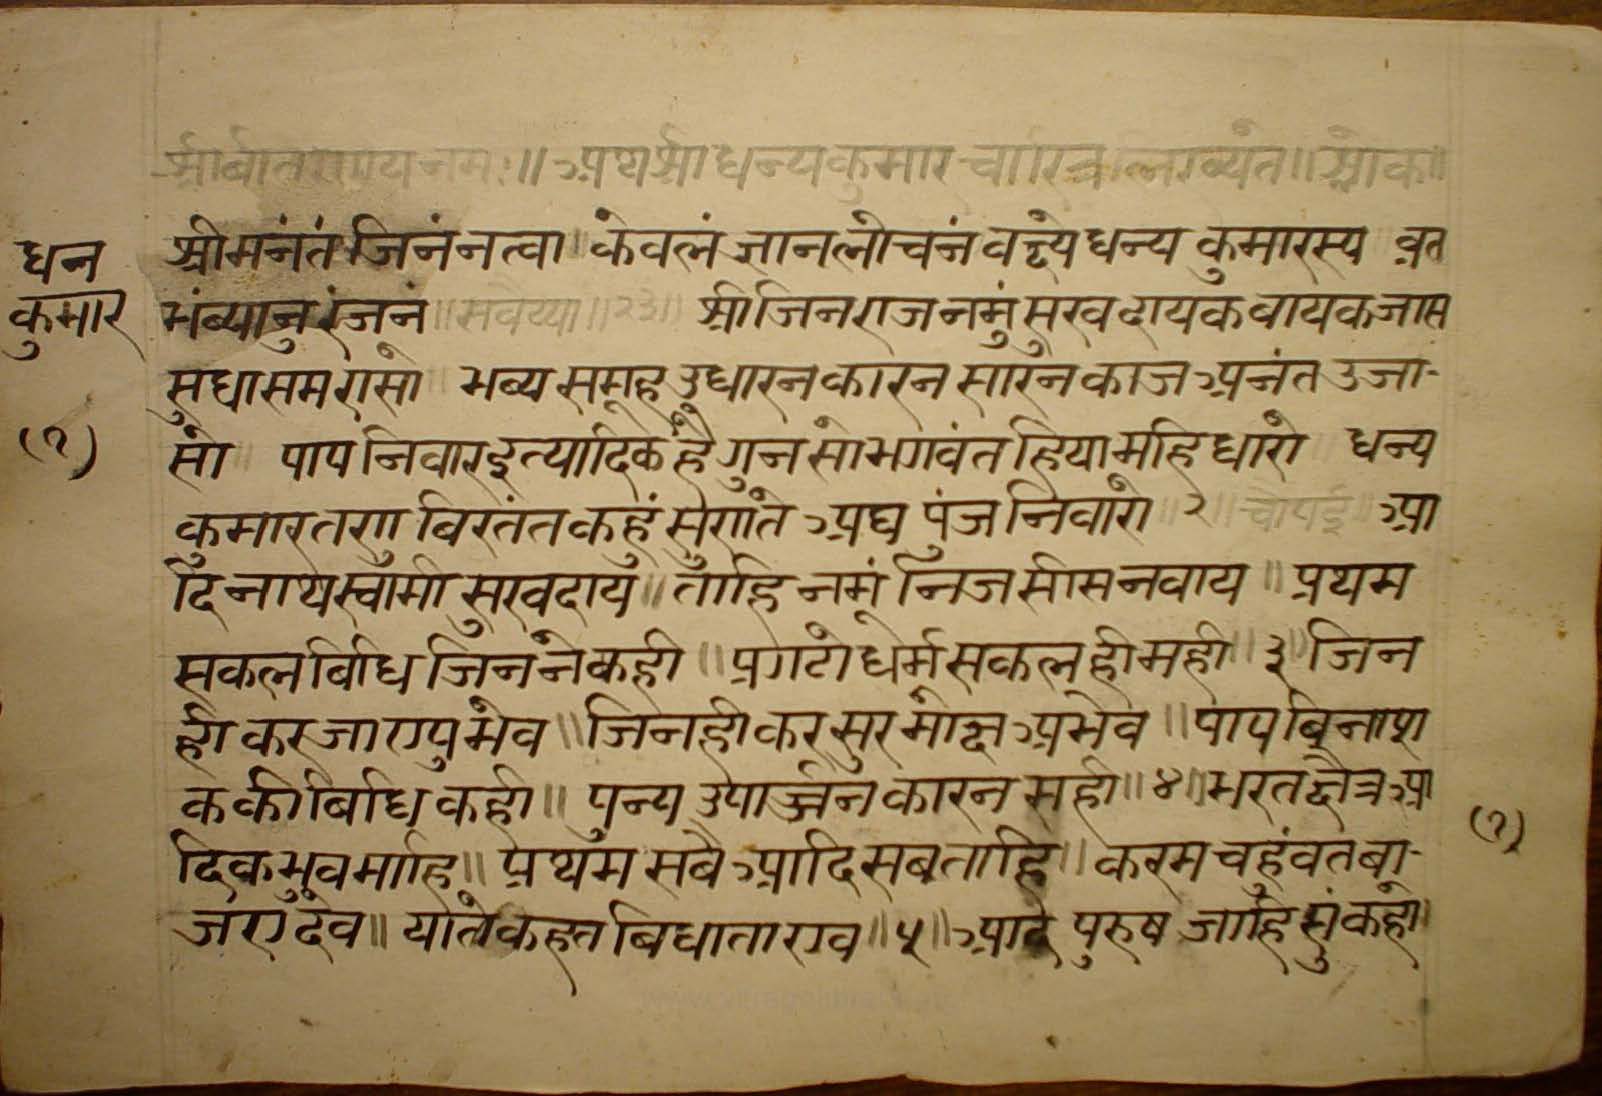 श्रीवीतरागाय नमः॥ अथ श्रीधन्यकुमार चारित्र लिख्यते॥ श्लोक॥
श्रीमनंतं जिनं नत्वा॥ केवलं ज्ञानलोचनं वक्ष्ये धन्य कुमारस्य व्रत
धन
कुमार
भंव्यानुरंजनं॥ सवैय्या॥२३॥ श्रीजिनराज नमुं सुखदायक वायक जास
सुधासम रासो॥ भव्य समूह उधारन कारन सारन काज अनंत उजा-
(१)
सो पाप निवार इत्यादिक हैं गुन सो भगवंत हिया महि धारो धन्य
कुमार तणा विरतंत कहुं सुणते अघ पुंज निवारो॥२॥ चौपई॥ आ
दिनाथ स्वामी सुखदाय॥ ताहि नमूं निज सीस नवाय॥ प्रथम
सकल विधि जिनने कही॥ प्रगटो धर्म सकल ही मही॥३॥ जिन
ही कर जाएपु मेव॥ जिनही कर सुर मोक्ष अभेव॥ पाप बिनाश
क की बिधि कही॥ पुन्य उपार्ज्जन कारन सही॥४॥ भरतक्षेत्र आ
दिक भुव माहि॥ प्रथम सबै आदि सब ताहि॥ करम चहुंवत बा-
(१)
ज ए देव॥ याते कहत बिधाता एव॥५॥ आदि पुरुष जाहि सुं कहो॥